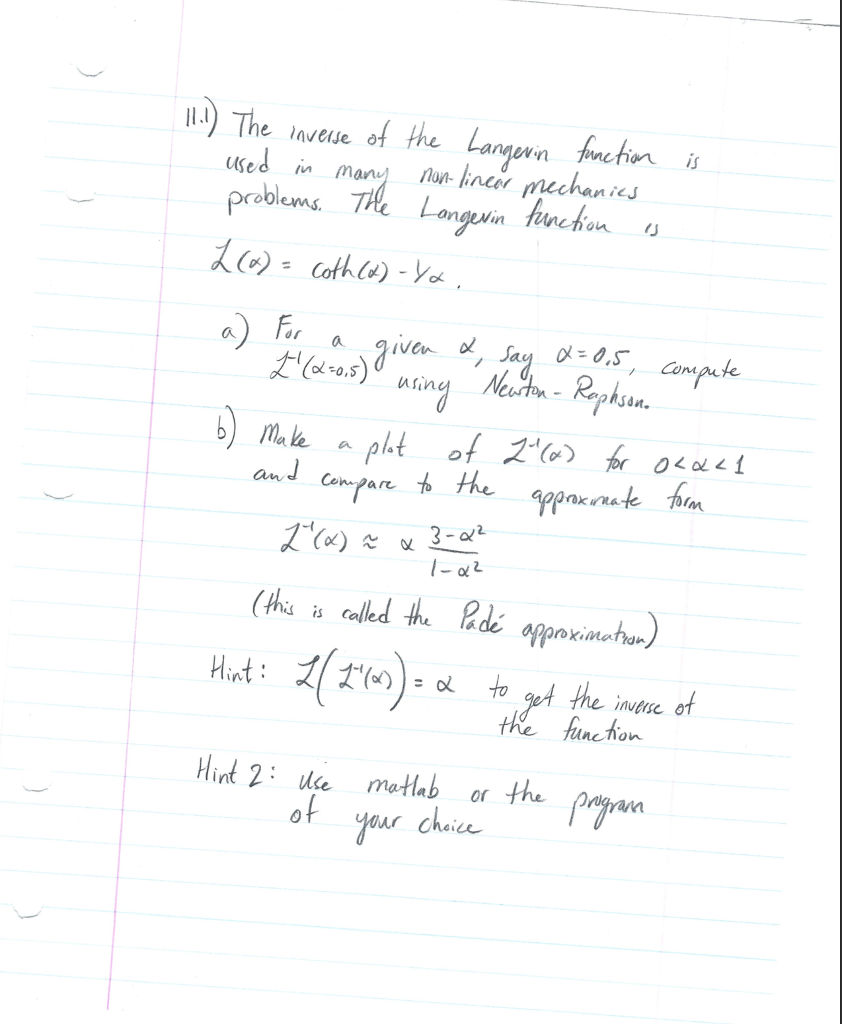 11.1) The inverse of the Langevin function is
used in many non-linear mechanics
problems. The Langevin function is
ℒ(α) = coth(α) - 1/α.
a) For a given α, say α=0.5, compute
ℒ⁻¹(α=0.5) using Newton-Raphson.
b) Make a plot of ℒ⁻¹(α) for 0<α<1
and compare to the approximate form
ℒ⁻¹(α) ≈ α (3-α²)/(1-α²)
(this is called the Padé approximation)
Hint: ℒ(ℒ⁻¹(α)) = α to get the inverse of
the function
Hint 2: Use matlab or the program
of your choice